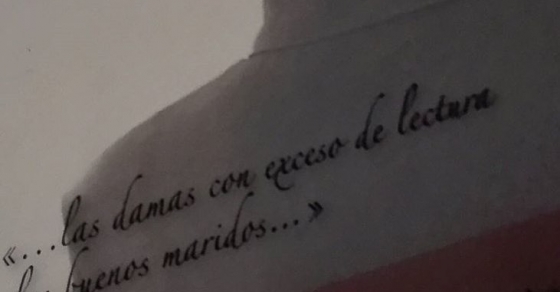 «...las damas con exceso de lectura
buenos maridos...»